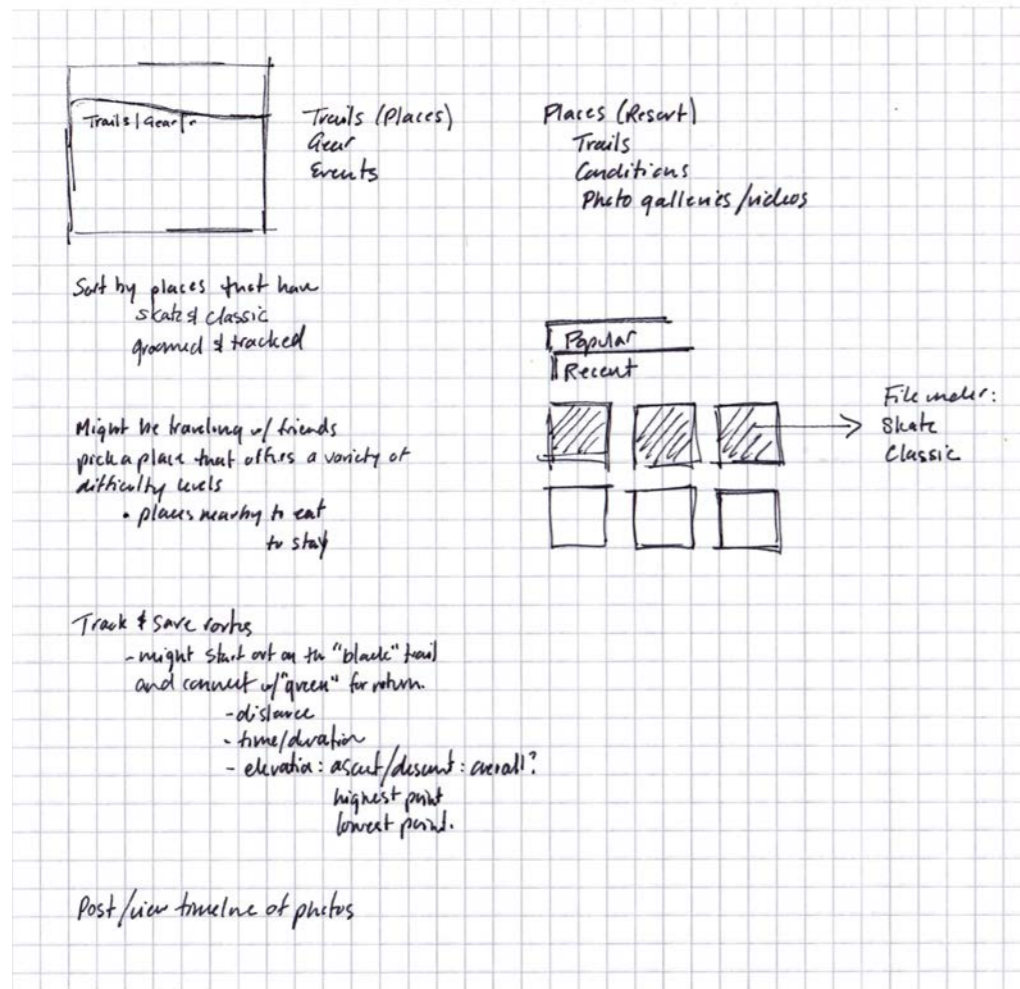 Trails | Gear |
Trails (Places)
Gear
Events
Places (Resort)
Trails
Conditions
Photo galleries/videos
Sort by places that have
skate & classic
groomed & tracked
Popular
Recent
File under:
Skate
Classic
Might be traveling w/ friends
pick a place that offers a variety of
difficulty levels
• places nearby to eat
to stay
Track & save routes
- might start out on the "black" trail
and connect w/ "green" for return.
- distance
- time/duration
- elevation: ascent/descent: overall?
highest point
lowest point.
Post/view timeline of photos